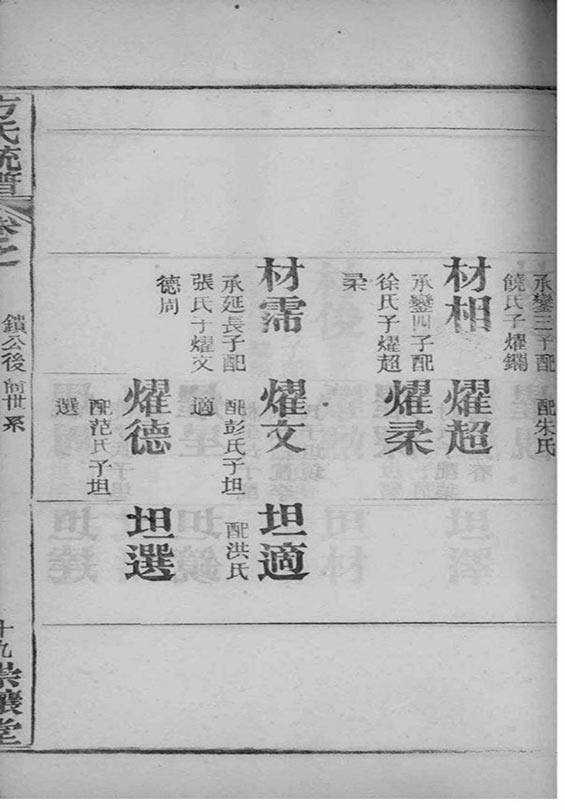 承鑾三子配
饒氏子燿鐗
配朱氏
材相
承鑾四子配
徐氏子燿超
燿超
燿柔
柔
材霈
承延長子配
張氏子燿文
德周
燿文
配彭氏子坦
適
坦適
配洪氏
燿德
配范氏子坦
選
坦選
方氏統譜
卷之
鎖公後
世系
十九
堂